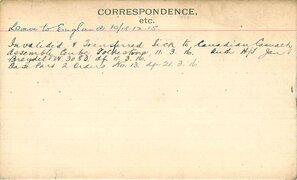 CORRESPONDENCE,
etc.
Leave to England 10/18-12-15
Invalided & Transferred Sick to Canadian Casualty
Assembly Centre Folkestone 11.3.16. Auth H/S Jan
3083 df 11.3.16
Base Part 2 Orders No. 13. df 21.3.16